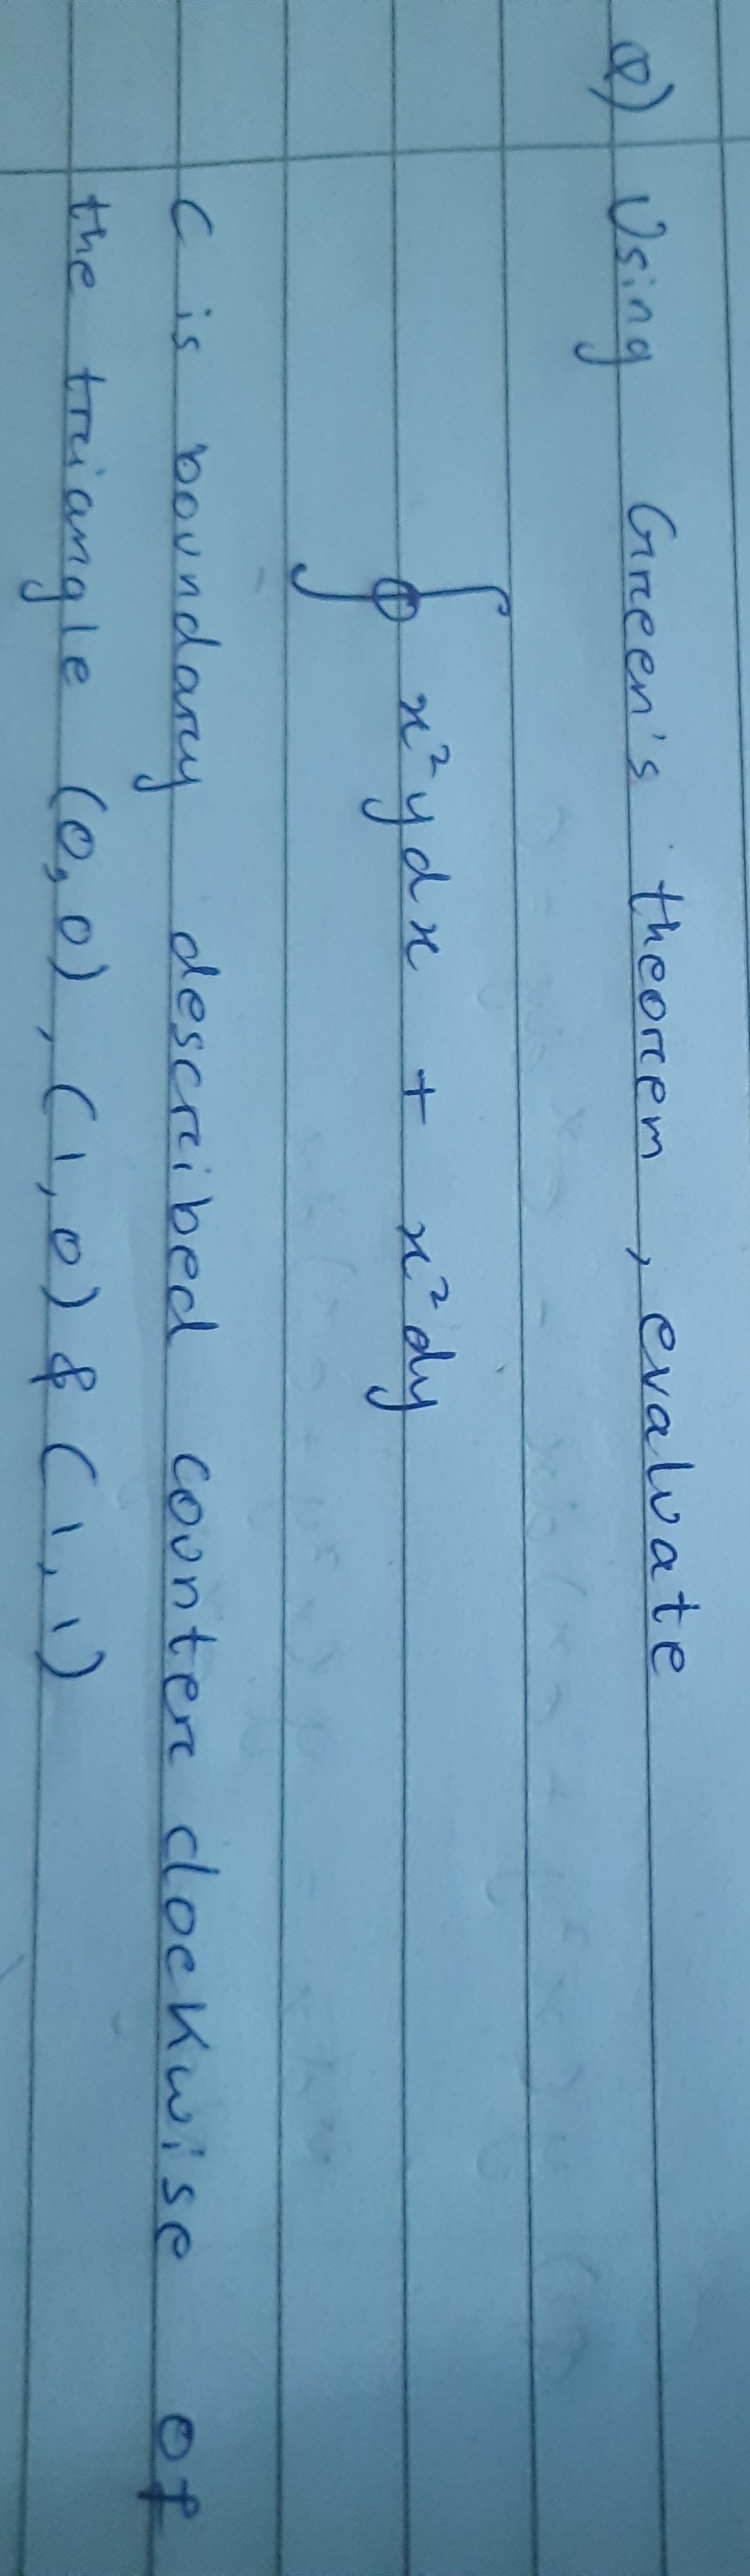 Q) Using Green's theorem, evaluate
∮ x²ydx + x²dy
C is boundary described counter clockwise of
the triangle (0,0), (1,0) & (1,1)